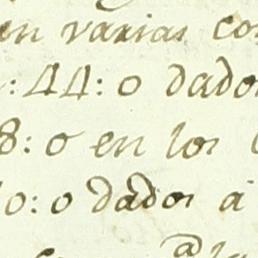 en varias co
: 44: o dado
8: o en los
o: o dados á